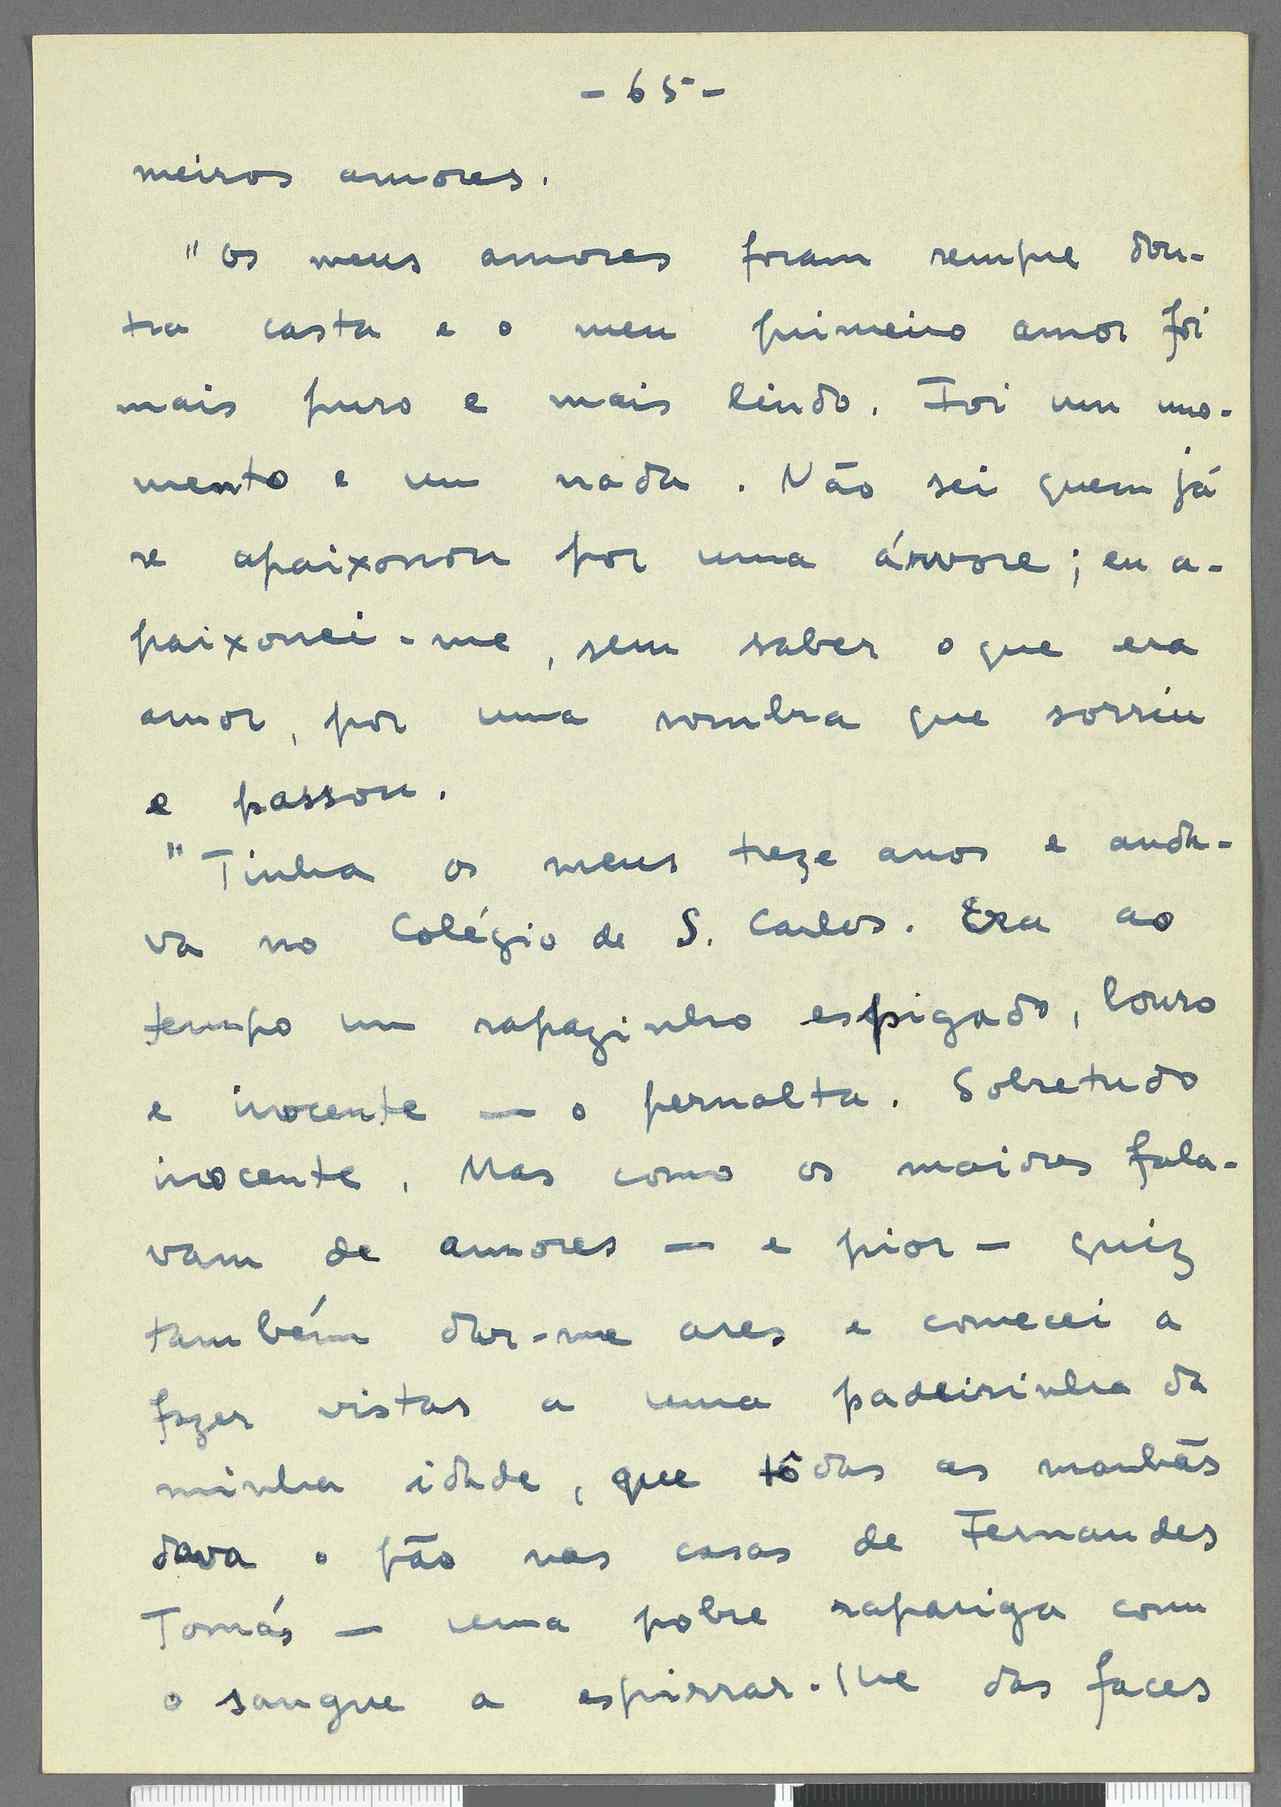 - 65 -
meiros amores.
"Os meus amores foram sempre dou-
tra casta e o meu primeiro amor foi
mais puro e mais lindo. Foi um mo-
mento e um nada. Não sei quem já
se apaixonou por uma árvore; eu a-
paixonei-me, sem saber o que era
amor, por uma sombra que sorriu
e passou.
"Tinha os meus treze anos e anda-
va no Colégio de S. Carlos. Era ao
tempo um rapazinho espigado, louro
e inocente — o pernalta. Sobretudo
inocente. Mas como os maiores fala-
vam de amores — e pior — quiz
também dar-me ares e comecei a
fazer vistas a uma padeirinha da
minha idade, que tôdas as manhãs
dava o pão nas casas de Fernandes
Tomás — uma pobre rapariga com
o sangue a espirrar-lhe das faces